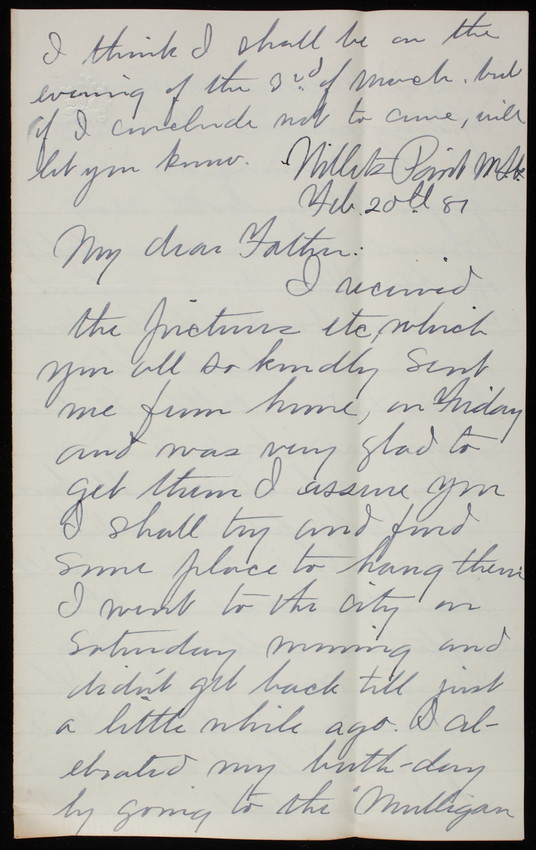 I think I shall be on the
evening of the 3rd of March. but
if I conclude not to come, will
let you know. Willets Point N.Y.
Feb. 20th 81
My dear Father:
I received
the pictures etc, which
you all so kindly sent
me from home, on Friday
and was very glad to
get them I assure you
I shall try and find
some place to hang them
I went to the city on
Saturday morning and
didn't get back till just
a little while ago. I cel-
ebrated my birth-day
by going to the "Mulligan